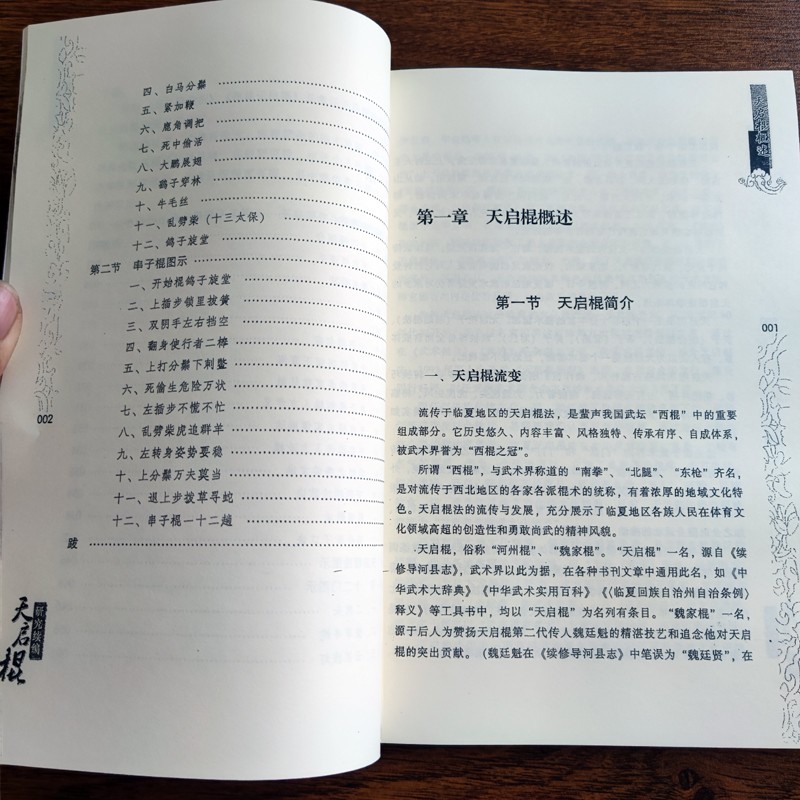 四、白马分鬃
五、紧加鞭
六、鹿角调把
七、死中偷活
八、大鹏展翅
九、鹞子穿林
十、牛毛丝
十一、乱劈柴（十三太保）
十二、鸽子旋堂
第二节 串子棍图示
一、开始棍鸽子旋堂
二、上插步锁里披簧
三、双阴手左右挡空
四、翻身使行者二棒
五、上打分鬃下刺鳖
六、死偷生危险万状
七、左插步不慌不忙
八、乱劈柴虎追群羊
九、左转身姿势要稳
十、上分鬃万夫莫当
十一、退上步拨草寻蛇
十二、串子棍一十二趟
跋
002
天启棍
天启棍概述
001
第一章 天启棍概述
第一节 天启棍简介
一、天启棍流变
流传于临夏地区的天启棍法，是蜚声我国武坛“西棍”中的重要
组成部分。它历史悠久、内容丰富、风格独特、传承有序、自成体系，
被武术界誉为“西棍之冠”。
所谓“西棍”，与武术界称道的“南拳”、“北腿”、“东枪”齐名，
是对流传于西北地区的各家各派棍术的统称，有着浓厚的地域文化特
色。天启棍法的流传与发展，充分展示了临夏地区各族人民在体育文
化领域高超的创造性和勇敢尚武的精神风貌。
天启棍，俗称“河州棍”、“魏家棍”。“天启棍”一名，源自《续
修导河县志》，武术界以此为据，在各种书刊文章中通用此名，如《中
华武术大辞典》《中华武术实用百科》《〈临夏回族自治州自治条例〉
释义》等工具书中，均以“天启棍”为名列有条目。“魏家棍”一名，
源于后人为赞扬天启棍第二代传人魏廷魁的精湛技艺和追念他对天启
棍的突出贡献。（魏廷魁在《续修导河县志》中笔误为“魏廷贤”，在